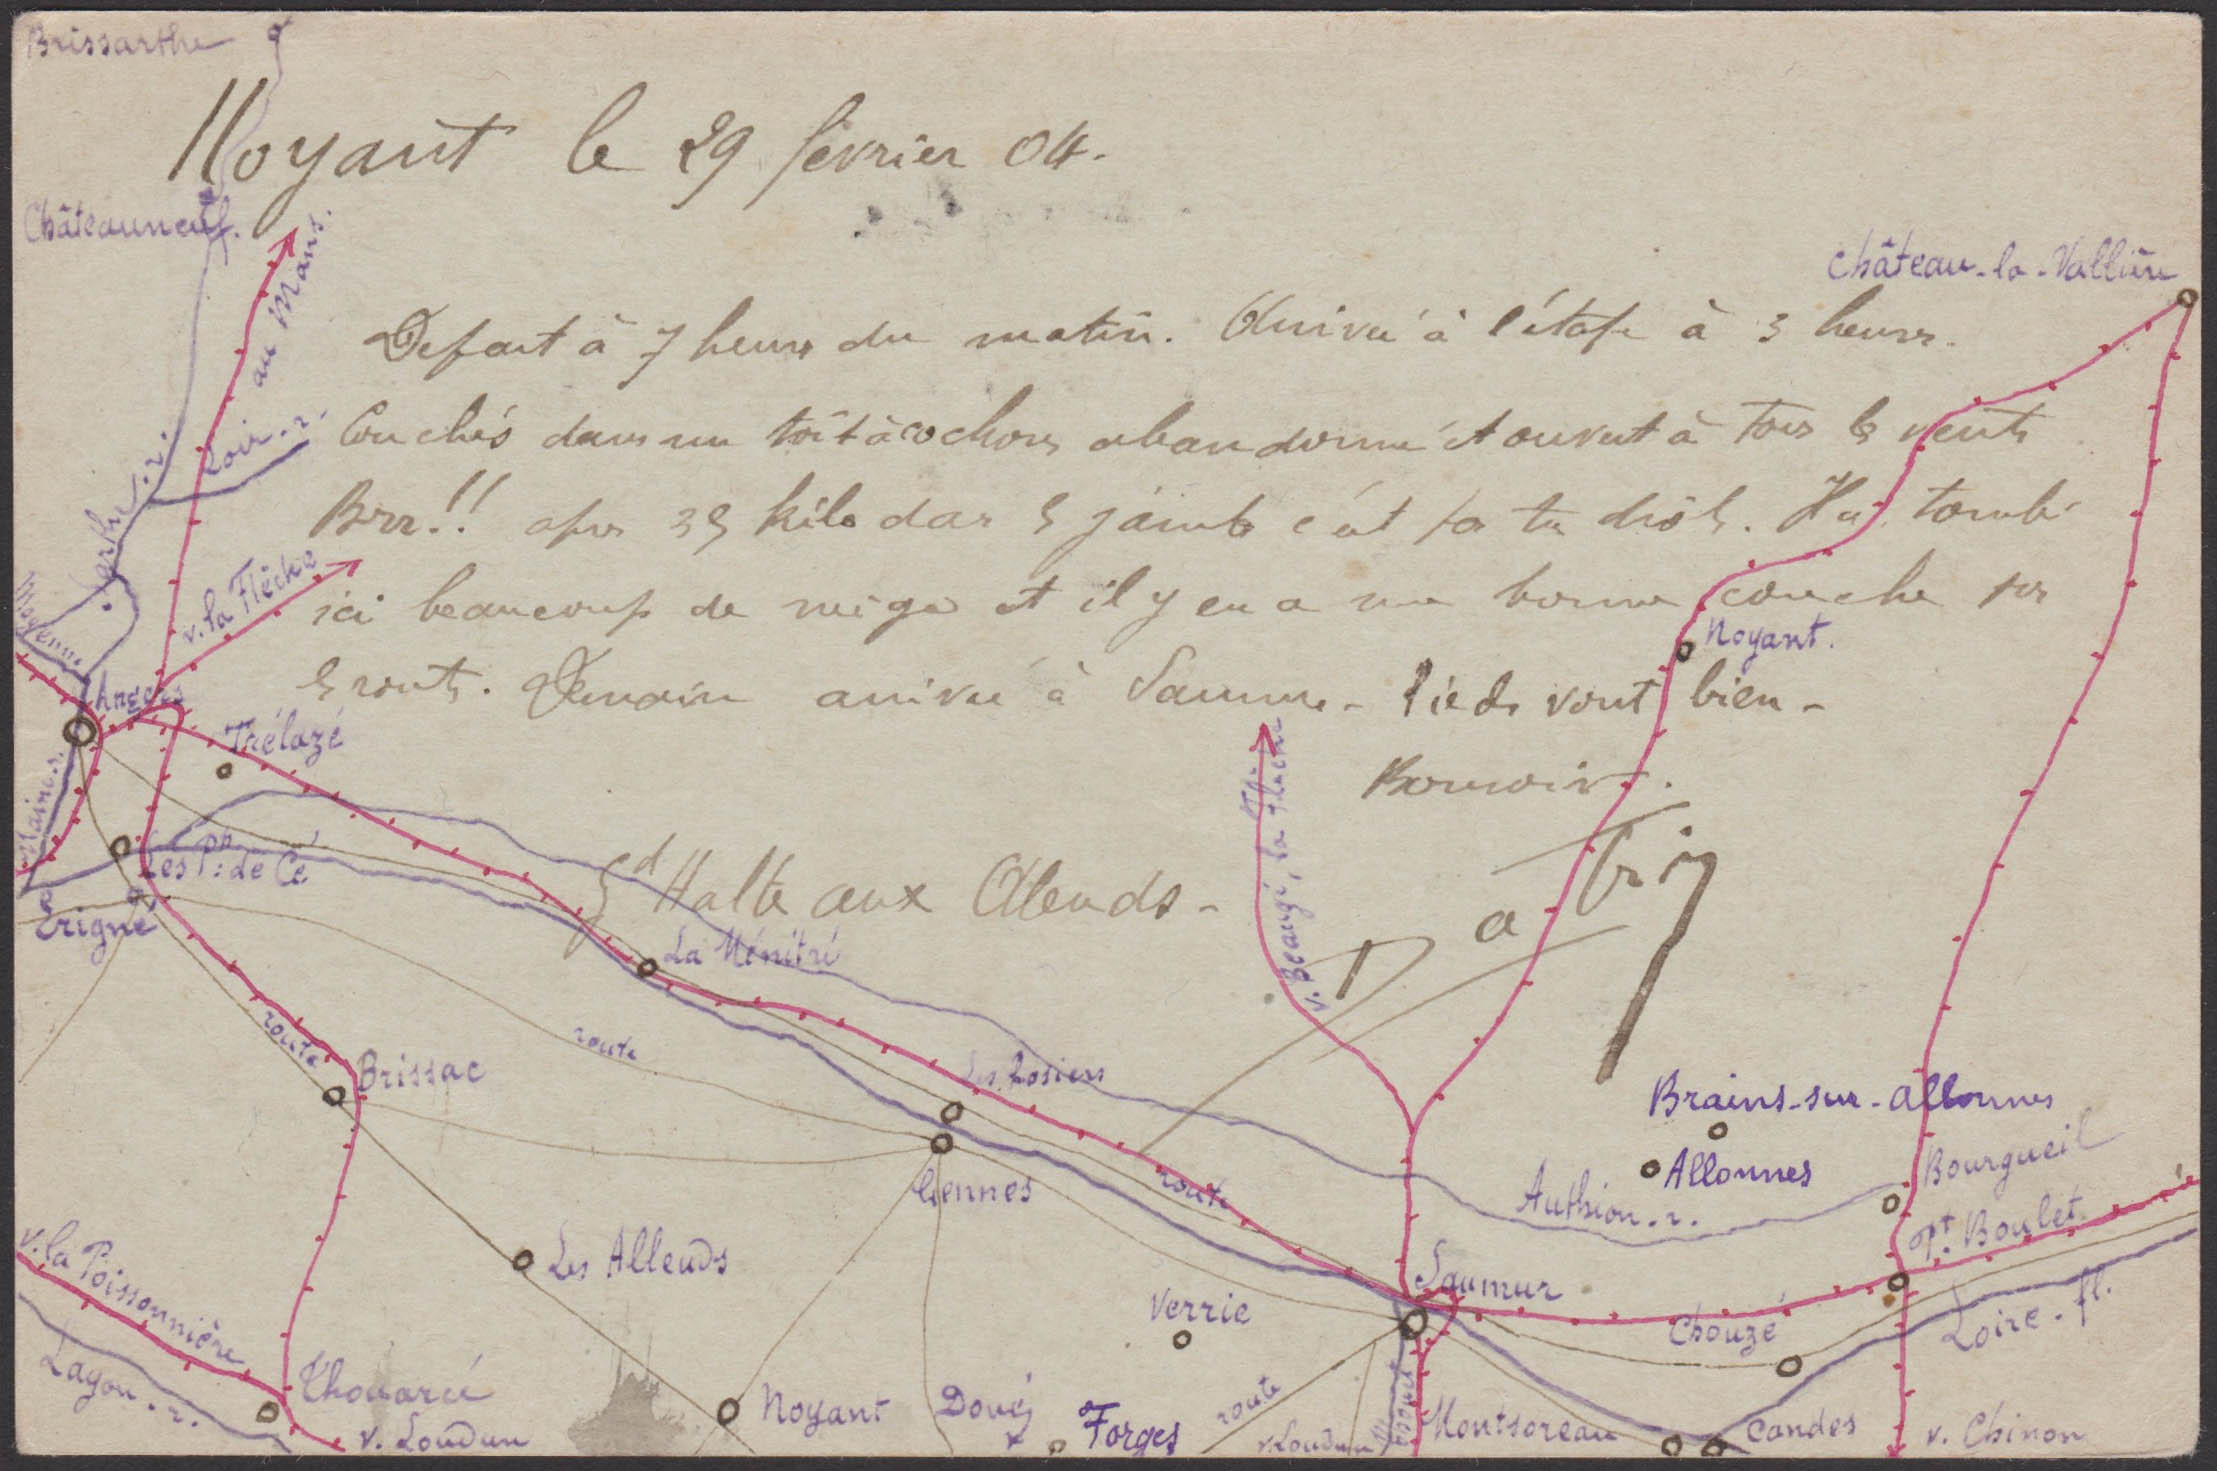 Brissarthe
Noyant le 29 février 04.
Châteauneuf.
au Mans.
Château-la-Vallière
Depart à 7 heures du matin. Arrivée à l'étape à 3 heures.
Couchés dans un toît à cochons abandonné et ouvert à tous les vents
Brr!! apres 35 kilo dans les jambes c'est pas tr drôle. Il a tombé
ici beaucoup de neige et il y en a une bonne couche sur
les routes. Demain arrivée à Saumur - Pieds vont bien -
Bonsoir.
Gd Halte aux Alleuds -
Loir. r.
v. la Flèche
Mayenne
Angers
Trélazé
Maine. r.
Les Pts de Cé
Érigné
La Ménitré
v. Beaugé, la Flèche
Noyant.
route
Brissac
route
Les Rosiers
Gennes
route
Brains-sur-Allonnes
Allonnes
Authion. r.
Bourgueil
Pt. Boulet
Les Alleuds
v. la Poissonnière
Layon. r.
Thouarcé
v. Loudun
Noyant
Doué
Forges
Verrie
route
v. Loudun
Saumur
Chouzé
Loire. fl.
Montsoreau
Candes
v. Chinon